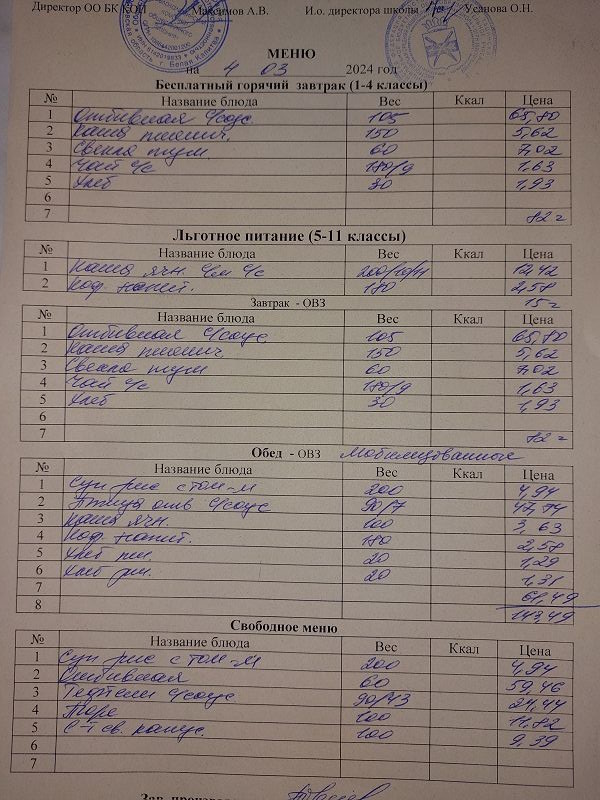 Директор ОО БК КОП Максимов А.В. И.о. директора школы Усанова О.Н.
МЕНЮ
на 4 03 2024 год
Бесплатный горячий завтрак (1-4 классы)
№ Название блюда Вес Ккал Цена
1 Отбивная ч/соус 105 65,80
2 Каша пшенич. 150 5,62
3 Свекла туш 60 7,02
4 Чай ч/с 180/9 1,63
5 Хлеб 30 1,93
6
7 82=
Льготное питание (5-11 классы)
№ Название блюда Вес Ккал Цена
1 Каша ячн. 12,42
2 Коф. напит. 180 2,58
15=
Завтрак - ОВЗ
№ Название блюда Вес Ккал Цена
1 Отбивная ч/соус 105 65,80
2 Каша пшенич 150 5,62
3 Свекла туш 60 7,02
4 Чай ч/с 180/9 1,63
5 Хлеб 30 1,93
6
7 82=
Обед - ОВЗ Мобилизованные
№ Название блюда Вес Ккал Цена
1 Суп рис с том-м 200 4,94
2 Птица отв ч/соус 90/7 47,74
3 Каша ячн. 100 3,63
4 Коф. напит. 180 2,58
5 Хлеб пш. 20 1,29
6 Хлеб рж. 20 1,31
7 61,49
8 143,49
Свободное меню
№ Название блюда Вес Ккал Цена
1 Суп рис с том-м 200 4,94
2 Отбивная 60 59,46
3 Тефтели ч/соус 90/43 24,44
4 Пюре 100 11,82
5 С-т св. капус. 100 9,39
6
7
Зав. произво